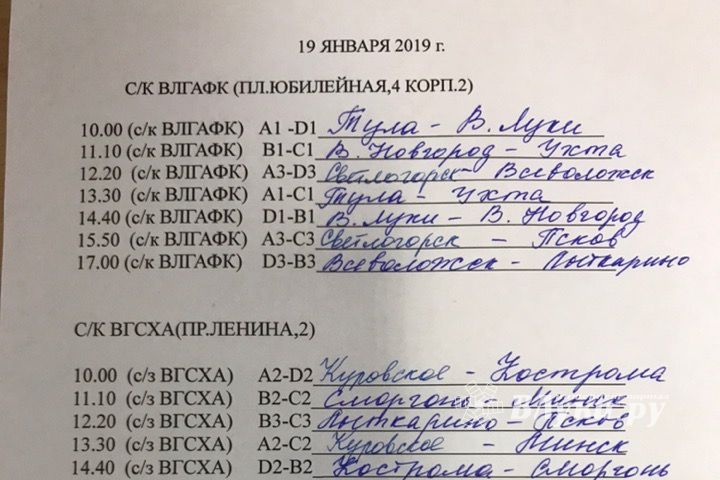 19 ЯНВАРЯ 2019 г.
С/К ВЛГАФК (ПЛ.ЮБИЛЕЙНАЯ,4 КОРП.2)
10.00 (с/к ВЛГАФК) A1 -D1 Тула - В. Луки
11.10 (с/к ВЛГАФК) B1-C1 В. Новгород - Ухта
12.20 (с/к ВЛГАФК) A3-D3 Светлогорск - Всеволожск
13.30 (с/к ВЛГАФК) A1-C1 Тула - Ухта
14.40 (с/к ВЛГАФК) D1-B1 В. Луки - В. Новгород
15.50 (с/к ВЛГАФК) A3-C3 Светлогорск - Псков
17.00 (с/к ВЛГАФК) D3-B3 Всеволожск - Лыткарино
С/К ВГСХА(ПР.ЛЕНИНА,2)
10.00 (с/з ВГСХА) A2-D2 Куровское - Кострома
11.10 (с/з ВГСХА) B2-C2 Сморгонь - Минск
12.20 (с/з ВГСХА) B3-C3 Лыткарино - Псков
13.30 (с/з ВГСХА) A2-C2 Куровское - Минск
14.40 (с/з ВГСХА) D2-B2 Кострома - Сморгонь